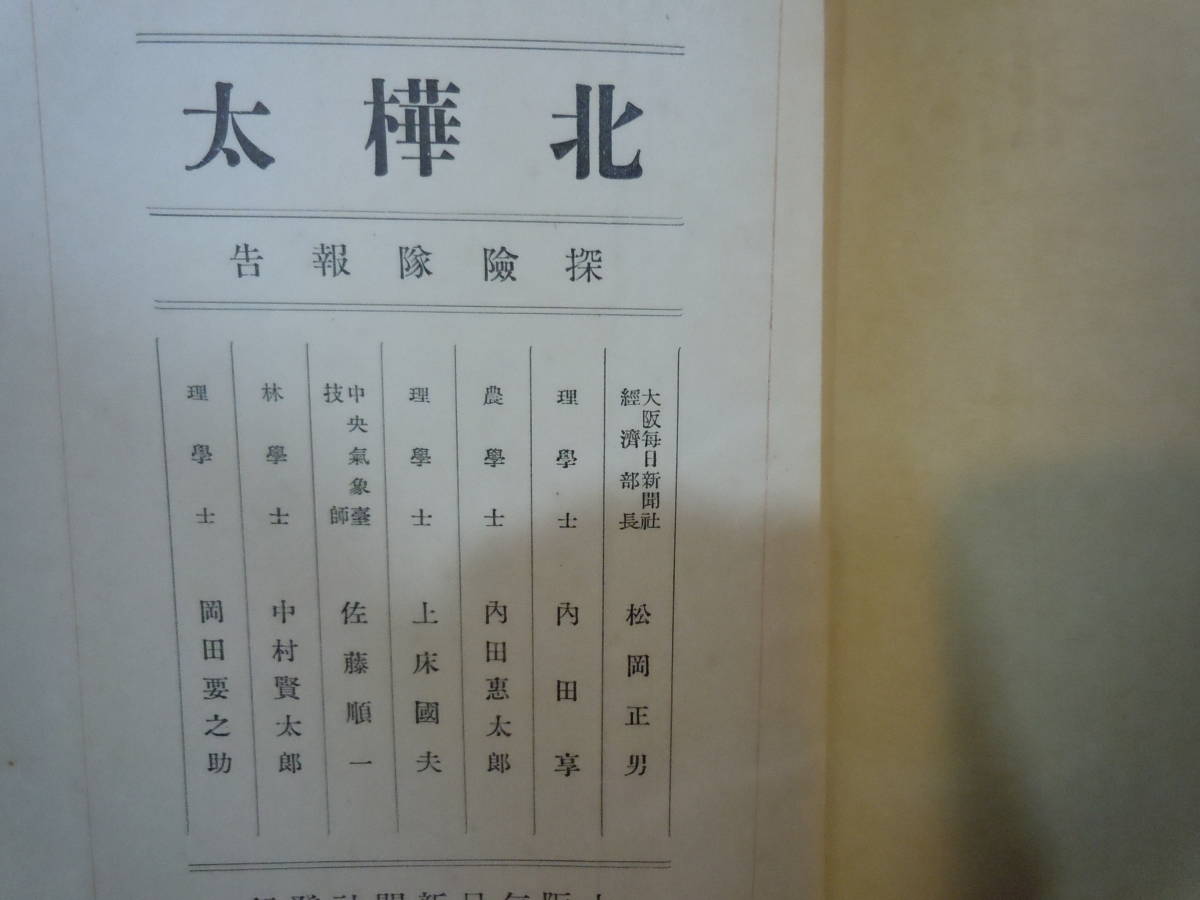 北樺太
探險隊報告
大阪每日新聞社
經濟部長
松岡正男
理學士
內田亨
農學士
內田惠太郎
理學士
上床國夫
中央氣象臺
技師
佐藤順一
林學士
中村賢太郎
理學士
岡田要之助